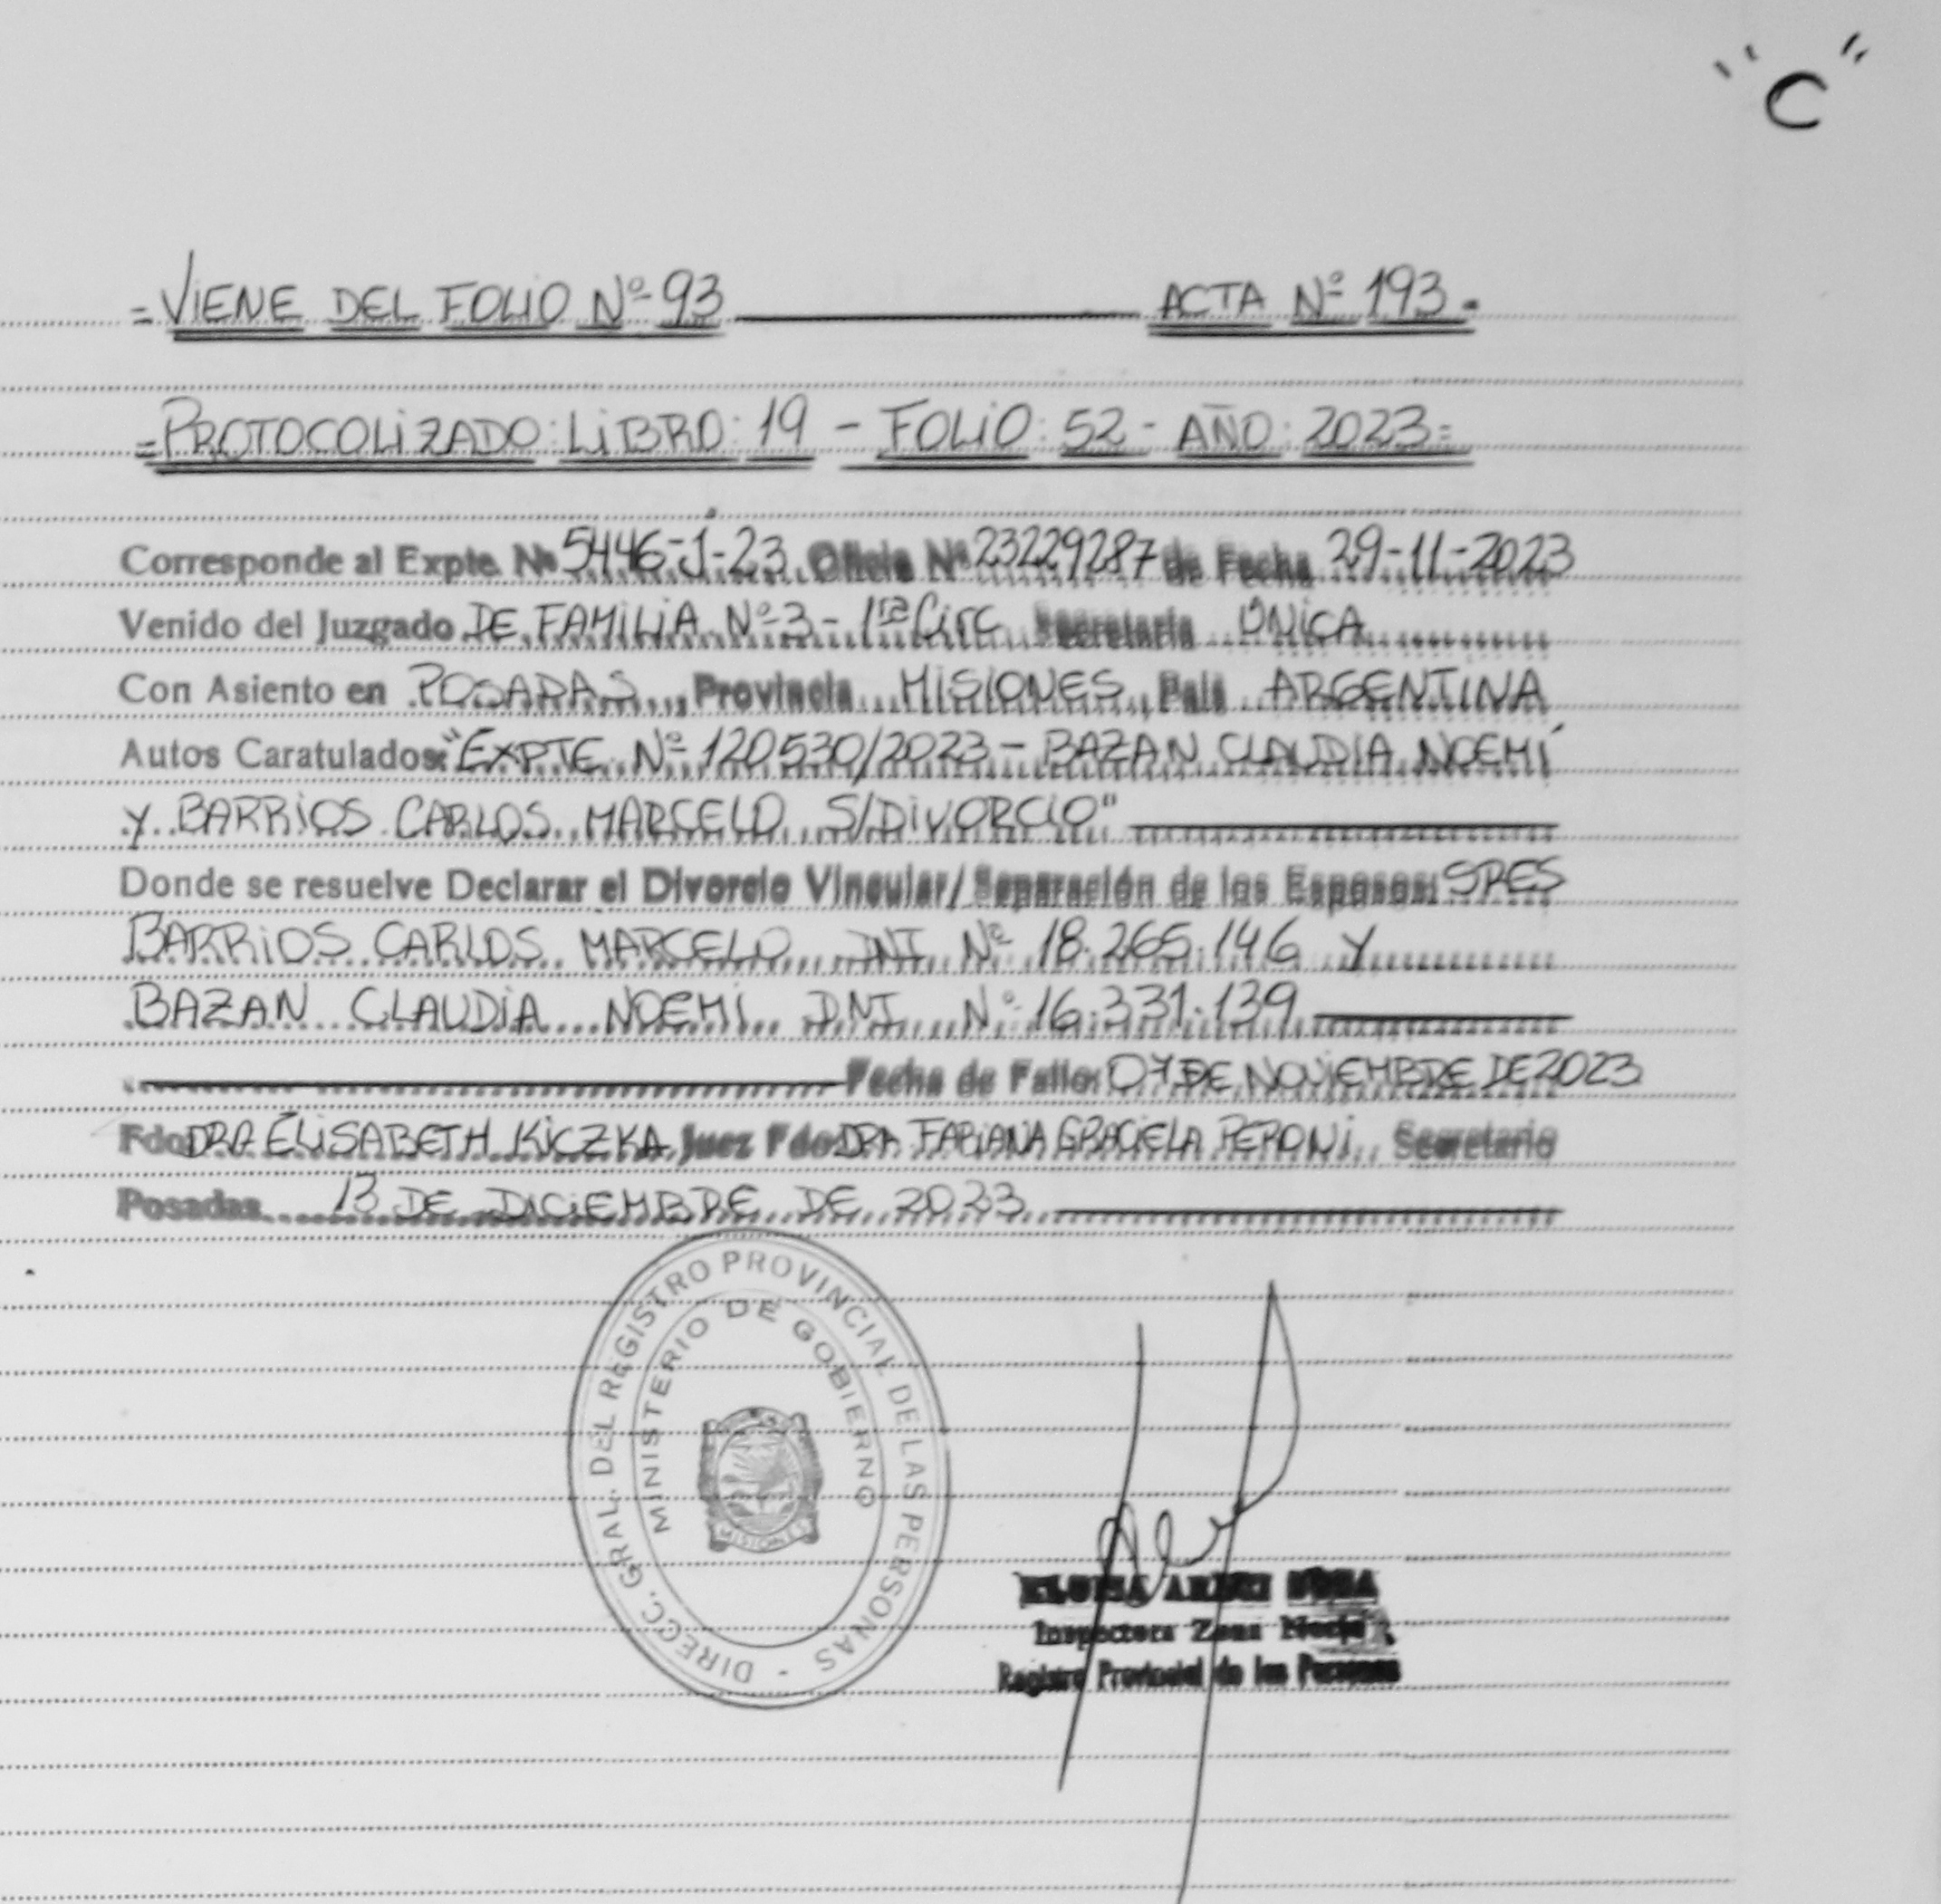 "C"
=VIENE DEL FOLIO Nº 93 ACTA Nº 193.=
=PROTOCOLIZADO: LIBRO: 19 - FOLIO: 52 - AÑO: 2023=
Corresponde al Expte. Nº 5446-J-23 Oficio Nº 23229287 de Fecha 29-11-2023
Venido del Juzgado DE FAMILIA Nº 3 - 1ra Circ Secretaria ÚNICA
Con Asiento en POSADAS, Provincia MISIONES, País ARGENTINA
Autos Caratulados: "EXPTE Nº 120530/2023 - BAZAN CLAUDIA NOEMÍ
Y BARRIOS CARLOS MARCELO S/DIVORCIO"
Donde se resuelve Declarar el Divorcio Vincular/Separación de los Esposos: SRES
BARRIOS CARLOS MARCELO DNI Nº 18.265.146 Y
BAZAN CLAUDIA NOEMI DNI Nº 16.331.139
Fecha de Fallo: DE NOVIEMBRE DE 2023
Fdo: DRA ELISABETH KICZKA Juez Fdo: DRA FABIANA GRACIELA PERONI, Secretario
Posadas 13 DE DICIEMBRE DE 2023
DIREC. GRAL. DEL REGISTRO PROVINCIAL DE LAS PERSONAS -
MINISTERIO DE GOBIERNO
MISIONES
ELOISA
Inspectora Zona Norte
Registro Provincial de las Personas